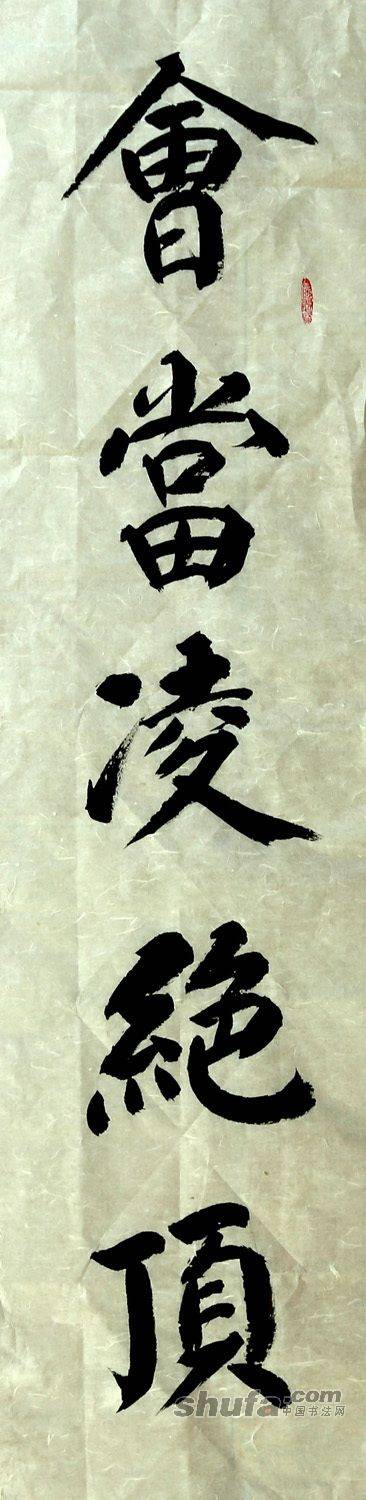 會當凌絕頂
shufa.com
中国书法网